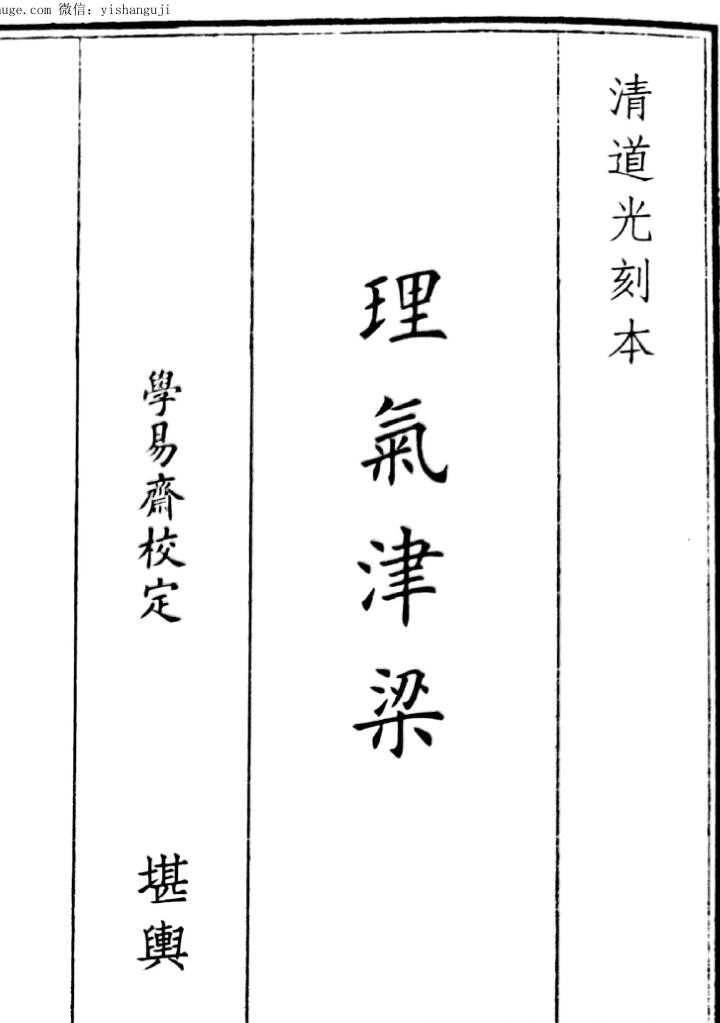 auge.com 微信: yishanguji
清道光刻本
理氣津梁
學易齋校定
堪輿